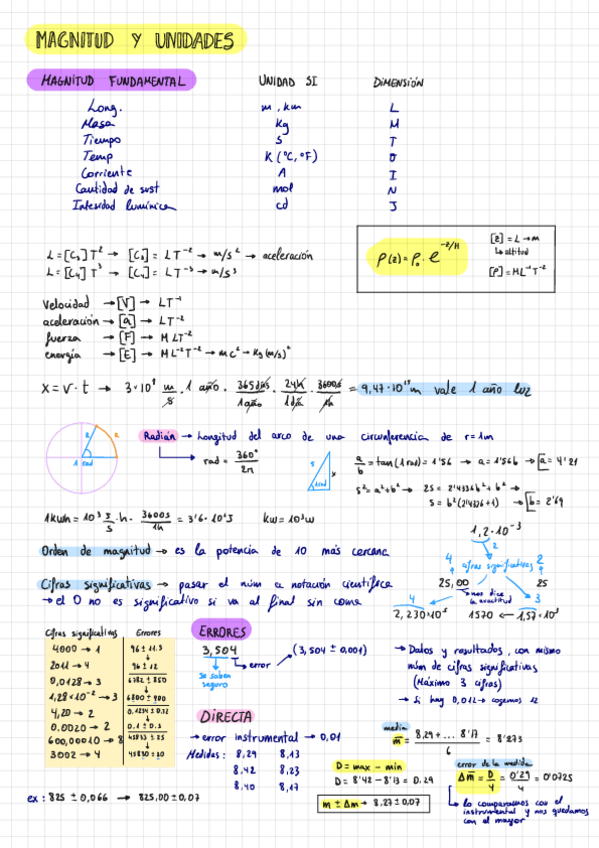 MAGNITUD Y UNIDADES
MAGNITUD FUNDAMENTAL UNIDAD SI DIMENSIÓN
Long. m, km L
Masa Kg M
Tiempo s T
Temp K (°C, °F) θ
Corriente A I
Cantidad de sust mol N
Intesidad lumínica cd J
L = [C₃] T² → [C₃] = LT⁻² → m/s² → aceleración
L = [C₄] T³ → [C₄] = LT⁻³ → m/s³
P(z) = P₀ · e^(-z/H)
[z] = L → m
↳ altitud
[P] = ML⁻¹T⁻²
Velocidad → [V] → LT⁻¹
aceleración → [a] → LT⁻²
fuerza → [F] → MLT⁻²
energía → [E] → ML²T⁻² → mc² → Kg(m/s)²
X = v · t → 3·10⁸ m/s · 1 año · 365 días/1 año · 24h/1 día · 3600s/1h = 9,47·10¹⁵ m vale 1 año luz
Radián → Longitud del arco de una circunferencia de r=1m
1 rad
rad = 360°/2π
a/b = tan(1 rad) = 1'56 → a = 1'56b → a = 4'21
s² = a² + b² → 25 = 2'4336b² + b² →
5 = b²(2'4336+1) → b = 2'69
1kwh = 10³ J/s · h · 3600s/1h = 3'6·10⁶ J kw = 10³w
Orden de magnitud → es la potencia de 10 más cercana
Cifras significativas → pasar el núm a notación científica
→ el 0 no es significativo si va al final sin coma
1,2·10⁻³
2
4 cifras significativas 2
25,00 25
nos dice la exactitud
4 3
2,230·10³ 1570 ← 1,57·10³
Cifras significativas Errores
4000 → 1 96 ± 11.3
2011 → 4 96 ± 12
0,0128 → 3 6382 ± 850
1,28·10⁻² → 3 6800 ± 900
4,20 → 2 0.1234 ± 0.12
0.0020 → 2 0.1 ± 0.1
600,00010 → 8 45833 ± 25
3002 → 4 45830 ± 30
ex: 825 ± 0,066 → 825,00 ± 0,07
ERRORES
3,504 → error (3,504 ± 0,001)
se saben seguro
→ Datos y resultados, con mismo
núm de cifras significativas
(Máximo 3 cifras)
→ Si hay 0,012 → cogemos 12
DIRECTA
→ error instrumental → 0,01
Medidas: 8,29 8,13
8,42 8,23
8,40 8,17
media
m̄ = 8,29 + ... 8'17 / 6 = 8'273
D = max - min
D = 8'42 - 8'13 = 0.29
error de la medida
Δm̄ = D/4 = 0'29/4 = 0'0725
m ± Δm → 8,27 ± 0,07
↳ lo comparamos con el
instrumental y nos quedamos
con el mayor